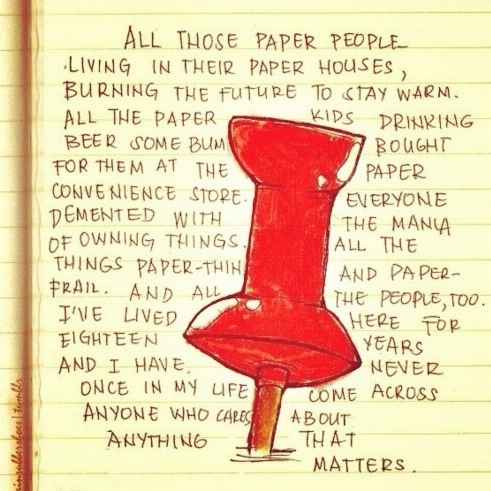 ALL THOSE PAPER PEOPLE
LIVING IN THEIR PAPER HOUSES,
BURNING THE FUTURE TO STAY WARM.
ALL THE PAPER KIDS DRINKING
BEER SOME BUM BOUGHT
FOR THEM AT THE PAPER
CONVENIENCE STORE. EVERYONE
DEMENTED WITH THE MANIA
OF OWNING THINGS. ALL THE
THINGS PAPER-THIN AND PAPER-
FRAIL. AND ALL THE PEOPLE, TOO.
I'VE LIVED HERE FOR
EIGHTEEN YEARS
AND I HAVE NEVER
ONCE IN MY LIFE COME ACROSS
ANYONE WHO CARES ABOUT
ANYTHING THAT
MATTERS.
inrubbershoes | tumblr